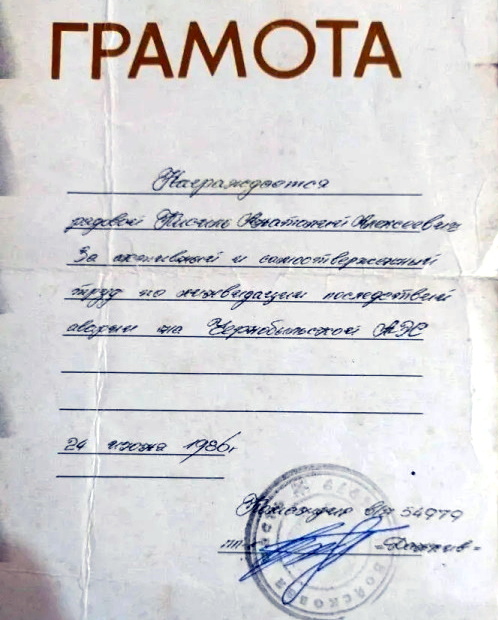 ГРАМОТА
Награждается
рядовой Анатолий Алексеевич
За активный и самоотверженный
труд по ликвидации последствий
аварии на Чернобыльской АЭС
24 июня 1986г
Командир в/ч 54979